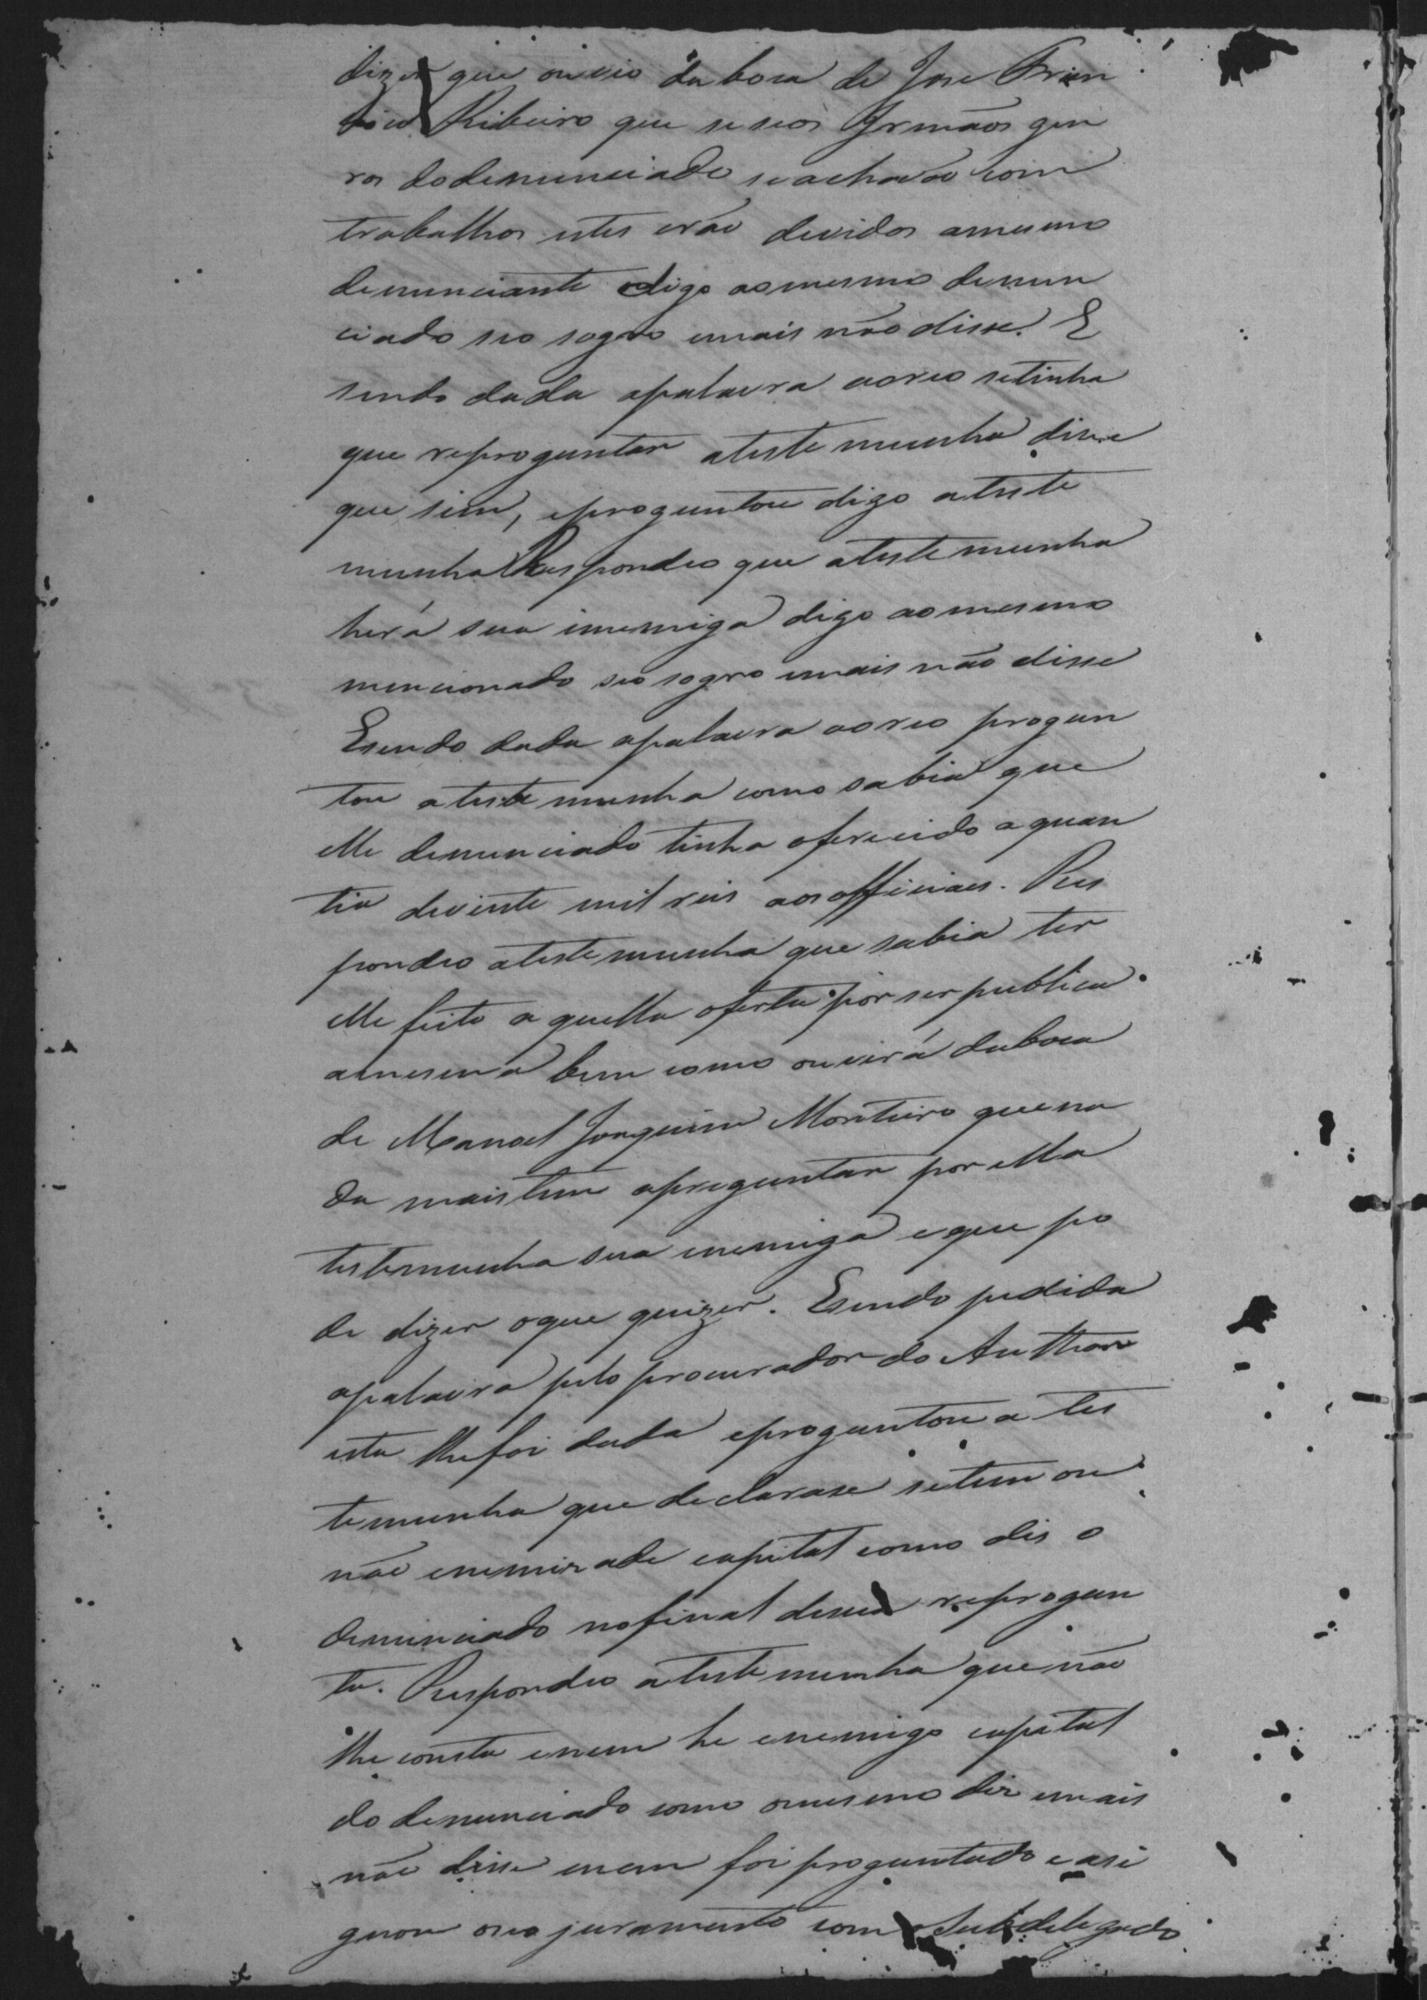 dizer que ouvio da boca de Jose Fran
cisco Ribeiro que se seos Irmãos gen
ros dodenunciado seachavão com
trabalhos estes erão devidos amesmo
denunciante digo aomesmo denun
ciado seo sogro emais não disse. E
sendo dada apalavra aoreo setinha
que reproguntar atestemunha disse
que sim, eproguntou digo ateste
munha Respondeo que atestemunha
herá sua inemiga digo aomesmo
mencionado seo sogro emais não disse
Esendo dada apalavra aoreo progun
tou atestemunha como sabia que
elle denunciado tinha oferecido aquan
tia devinte mil reis aosofficiaes. Res
pondeo atestemunha que sabia ter
elle feito aquella oferta por ser publica
amesma bem como ouvirá daboca
de Manoel Joaquim Monteiro quena
da maistem apreguntar por ella
testemunha sua enemiga eque po
de dizer oque quizer. Esendo pedida
apalavra pelo procurador do Authore
esta lhefoi dada eproguntou a tes
temunha que declarase setem ou
não enemizade capital como dis o
denunciado nofinal desua reprogun
ta. Respondeo atestemunha que não
lhe consta enem he enemigo capital
do denunciado como omesmo diz emais
não disse enem foi proguntado easi
gnou oseo juramento com Subdelegado